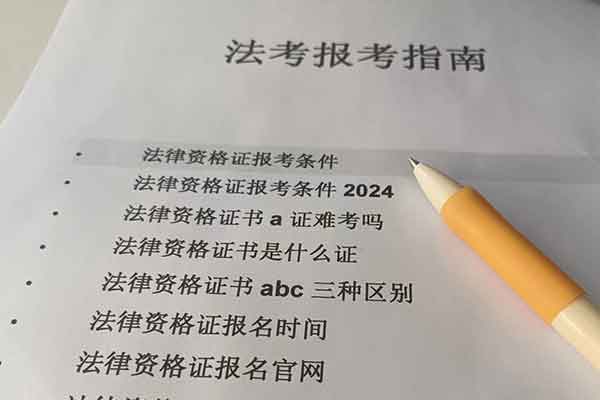 法考报考指南
法律资格证报考条件
法律资格证报考条件 2024
法律资格证书 a 证难考吗
法律资格证书是什么证
法律资格证书 abc 三种区别
法律资格证报名时间
法律资格证报名官网